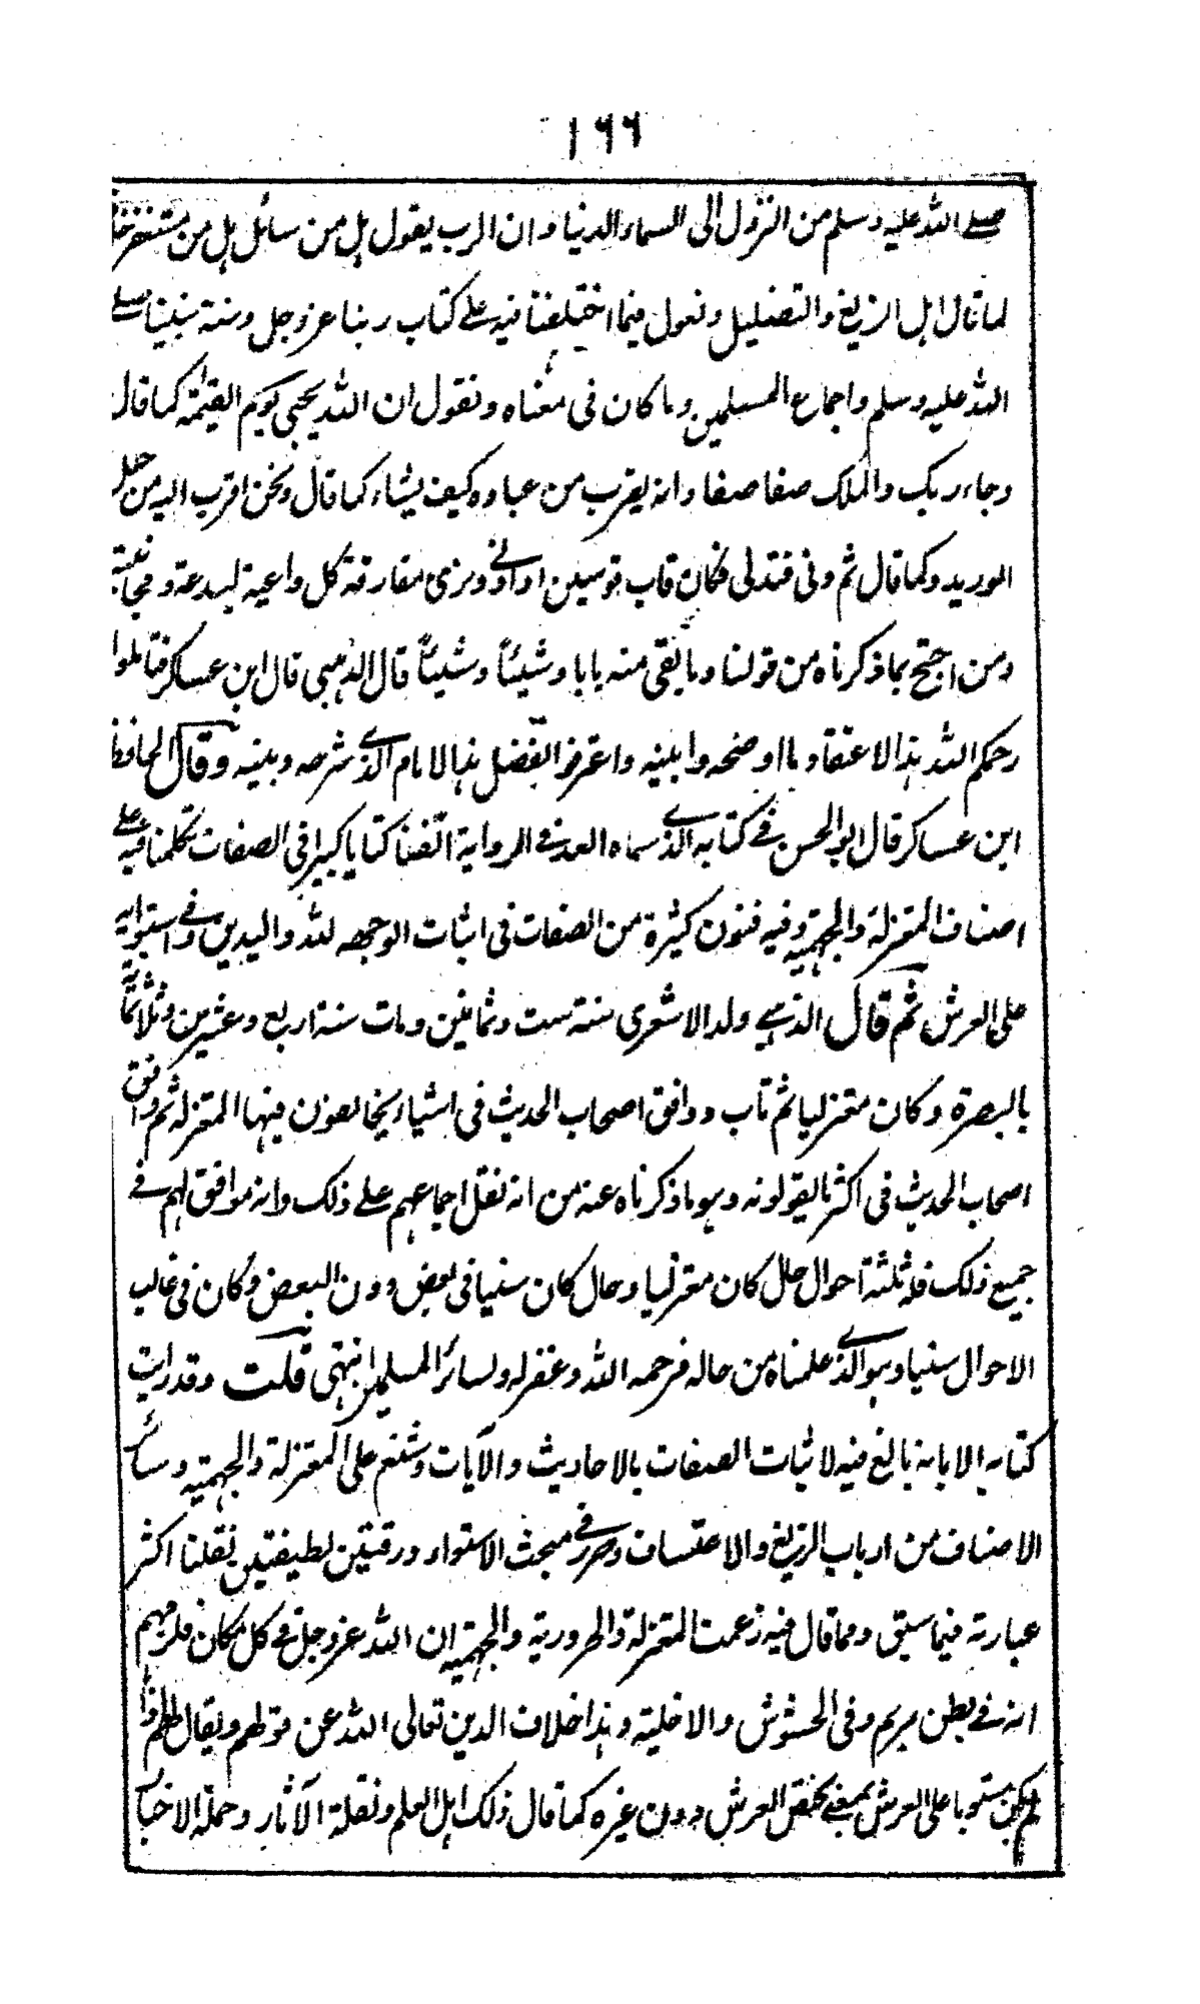 ١٦٦
صلے الله عليه وسلم من النزول الى السماء الدنيا وان الرب يقول هل من سائل هل من مستغفر خلافا
لما قال اهل الزيغ والتضليل ونعول فيما اختلفنا فيه على كتاب ربنا عز وجل وسنة نبينا صلے
الله عليه وسلم واجماع المسلمين وما كان فى معناه ونقول ان الله يجئ يوم القيمة كما قال
وجاء ربك والملك صفا صفا وانه يقرب من عباده كيف يشاء كما قال ونحن اقرب اليه من حبل
الوريد وكما قال ثم دنى فتدلى فكان قاب قوسين او ادنى ونرى مفارقة كل داعية لبدعة ومجانبة
ومن احتج بما ذكرناه من قولنا وما بقى منه بابا وشيئاً وشيئاً قال الذهبى قال ابن عساكر فتاملوا
رحمكم الله هذا الاعتقاد ما اوضحه وابينه واعترفوا بفضل هذا الامام الذى شرحه وبينه وقال الحافظ
ابن عساكر قال ابو الحسن فے كتابه الذى سماه العمد فى الرواية الفنا كتابا كبيرا فى الصفات تكلمنا فيه على
اصناف المعتزلة والجهمية وفيه فنون كثيرة من الصفات فى اثبات الوجهه لله واليدين وفى استوائه
على العرش ثم قال الذهبے ولد الاشعرى سنة ست وثمانين ومات سنة اربع وعشرين وثلاثمائة
بالبصرة وكان معتزليا ثم تاب ووافق اصحاب الحديث فى اشياء يخالفون فيها المعتزلة ثم وافق
اصحاب الحديث فى اكثر ما يقولونه وهو ما ذكرناه عنه من انه نقل اجماعهم على ذلك وانه موافق لهم فے
جميع ذلك فله ثلثة احوال حال كان معتزليا وحال كان سنيا فى بعض دون البعض وكان فى غالب
الاحوال سنيا وهو الذى علمناه من حاله فرحمه الله وغفر له ولسائر المسلمين انتهى قلت وقد رايت
كتابه الابانة بالغ فيه لاثبات الصفات بالاحاديث والآيات وشنع على المعتزلة والجهمية وسائر
الاصناف من ارباب الزيغ والاعتساف وحرر فى مبحث الاستواء ورقتين لطيفتين نقلنا اكثر
عبارته فيما سبق ومما قال فيه زعمت المعتزلة والحرورية والجهمية ان الله عز وجل فى كل مكان فلزمهم
انه فے بطن مريم وفى الحشوش والاخلية وهذا خلاف الدين تعالى الله عن قولهم ويقال لهم اذا
لم يكن مستويا على العرش بمعنى يختص العرش دون غيره كما قال ذلك اهل العلم ونقلة الآثار وحملة الاخبار